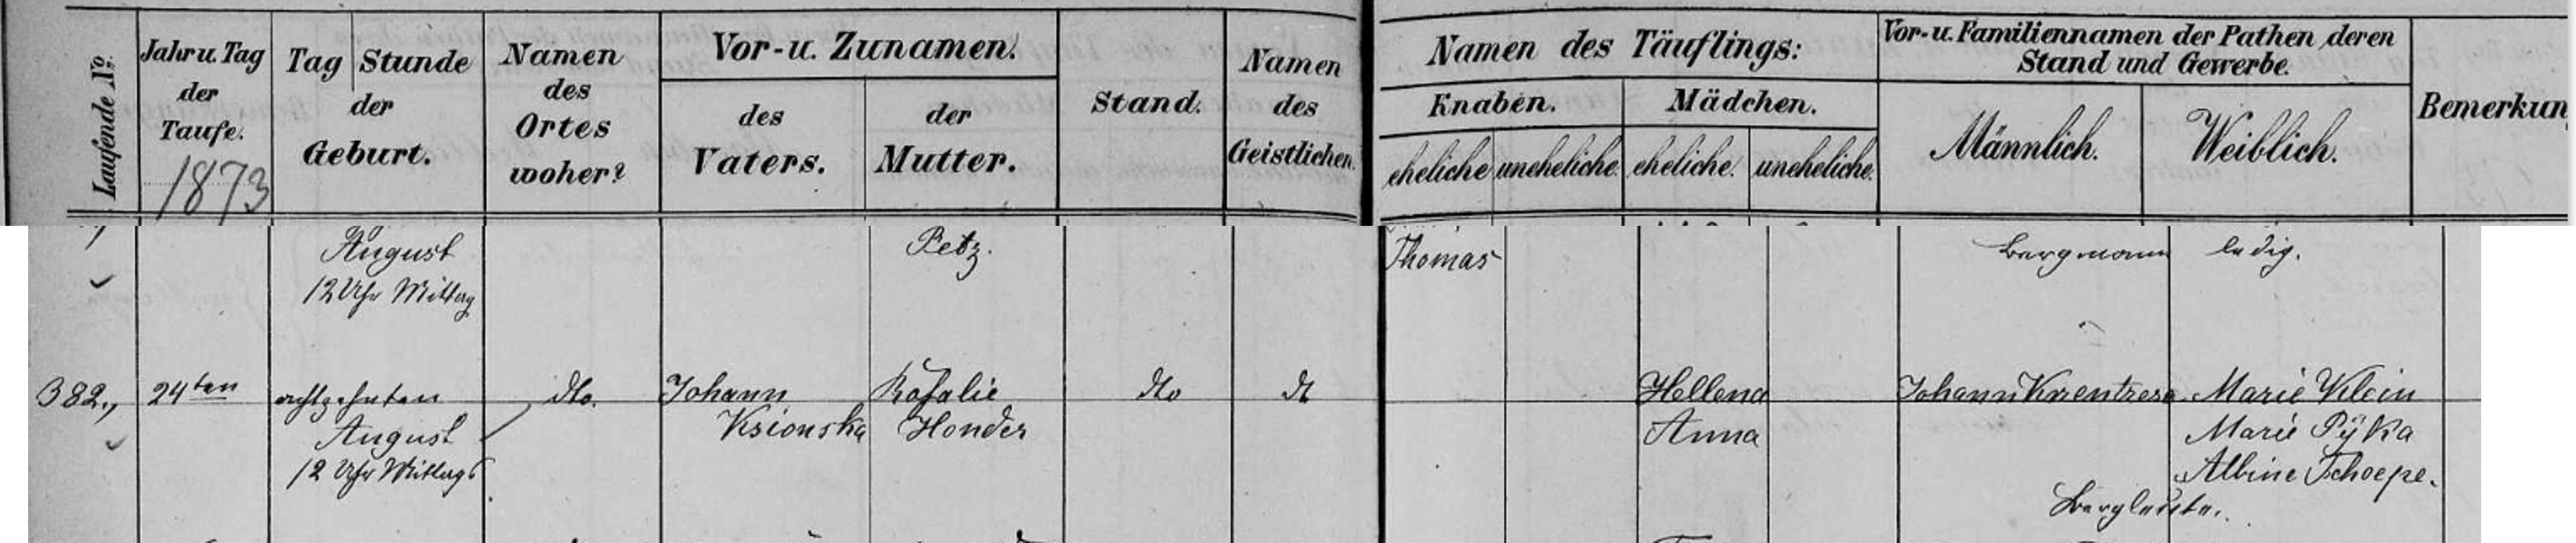 Laufende No.
Jahr u. Tag
der
Taufe.
1873
Tag Stunde
der
Geburt.
Namen
des
Ortes
woher?
Vor- u. Zunamen.
des
Vaters.
der
Mutter.
Stand.
Namen
des
Geistlichen.
Namen des Täuflings:
Knaben.
Mädchen.
eheliche
uneheliche.
eheliche.
uneheliche.
Vor- u. Familiennamen der Pathen, deren
Stand und Gewerbe.
Männlich.
Weiblich.
Bemerkun
August
12 Uhr Mittag
Petz.
Thomas
Bergmann
ledig.
382.,
24ten
achtzehnten
August
12 Uhr Mittags
dto.
Johann
Ksionska
Rosalie
Honder
dto
dt
Hellena
Anna
Johann
Marie Klein
Marie Pÿka
Albine Tschoepe.
Bergleute.